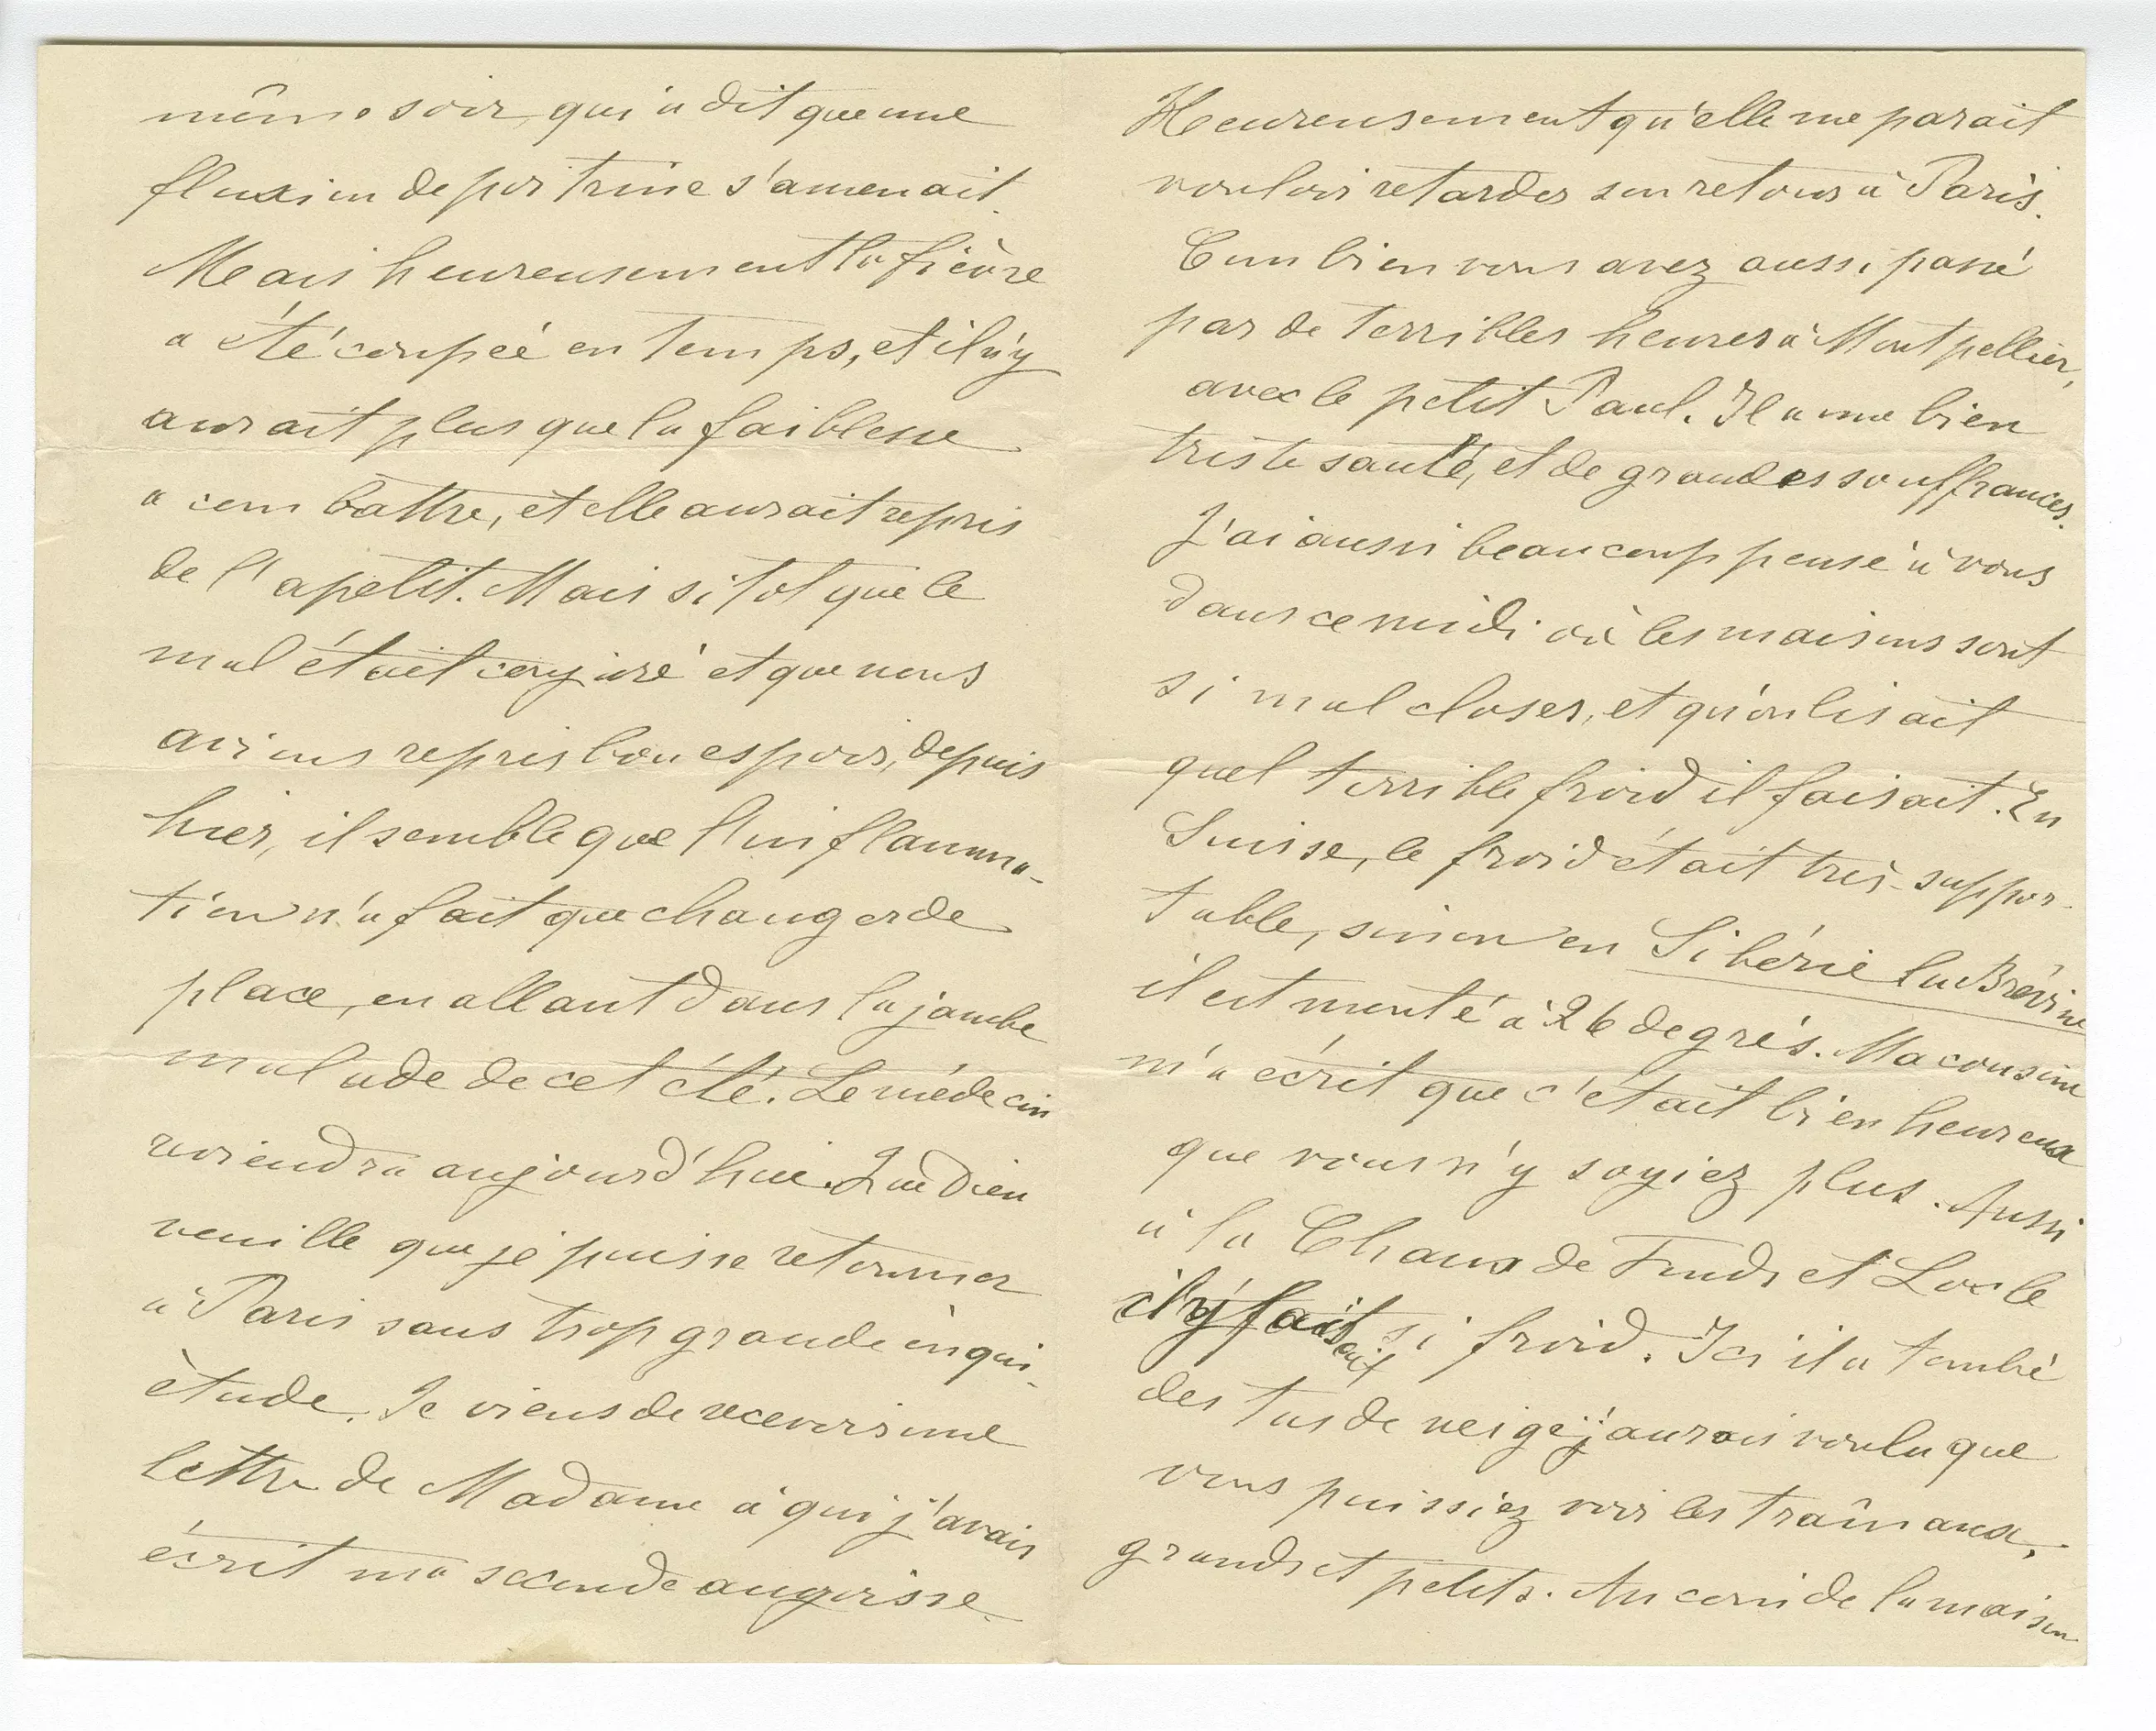 même soir, qui a dit que une
fluxion de poitrine s'amenait.
Mais heureusement la fièvre
a été coupée en temps, et il n'y
aurait plus que la faiblesse
a combattre, et elle aurait repris
de l'apetit. Mais si tot que le
mal était conjuré et que nous
avions repris bon espoir, depuis
hier, il semble que l'inflamma-
tion n'a fait que changer de
place, en allant dans la jambe
malade de cet été. Le médecin
reviendra aujourd'hui. Que Dieu
veuille que je puisse retourner
à Paris sans trop grande inqui-
ètude. Je viens de recevoir une
lettre de Madame à qui j'avais
écrit ma seconde angoisse.
Heureusement qu'elle me parait
vouloir retarder son retour à Paris.
Combien vous avez aussi passé
par de terribles heures à Montpellier,
avec le petit Paul. Il a une bien
triste santé, et de grandes souffrances.
J'ai aussi beaucoup pensé à vous
dans ce midi où les maisons sont
si mal closes, et qu'on lisait
quel terrible froid il faisait. En
Suisse, le froid était très-suppor-
table, sinon en Sibérie la Brévine
il est monté à 26 degrés. Ma cousine
m'a écrit que c'était bien heureux
que vous n'y soyiez plus. Aussi
à la Chaux de Fonds et Locle
il y faisait si froid. Ici il a tombé
des tas de neige; j'aurais voulu que
vous puissiez voir les traîneaux,
grands et petits. Au coin de la maison